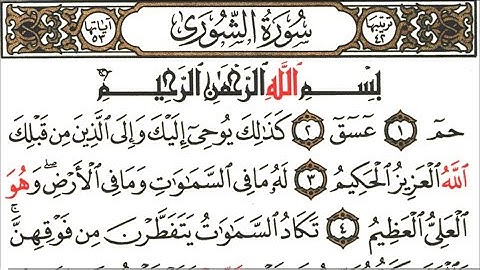 ترتيبها ٤٢ سُورَةُ الشُّورَىٰ آياتها ٥٣
بِسْمِ اللَّهِ الرَّحْمَٰنِ الرَّحِيمِ
حمٓ ١ عٓسٓقٓ ٢ كَذَٰلِكَ يُوحِىٓ إِلَيْكَ وَإِلَى الَّذِينَ مِن قَبْلِكَ
اللَّهُ الْعَزِيزُ الْحَكِيمُ ٣ لَهُۥ مَا فِى السَّمَٰوَٰتِ وَمَا فِى الْأَرْضِ ۖ وَهُوَ
الْعَلِىُّ الْعَظِيمُ ٤ تَكَادُ السَّمَٰوَٰتُ يَتَفَطَّرْنَ مِن فَوْقِهِنَّ ۚ